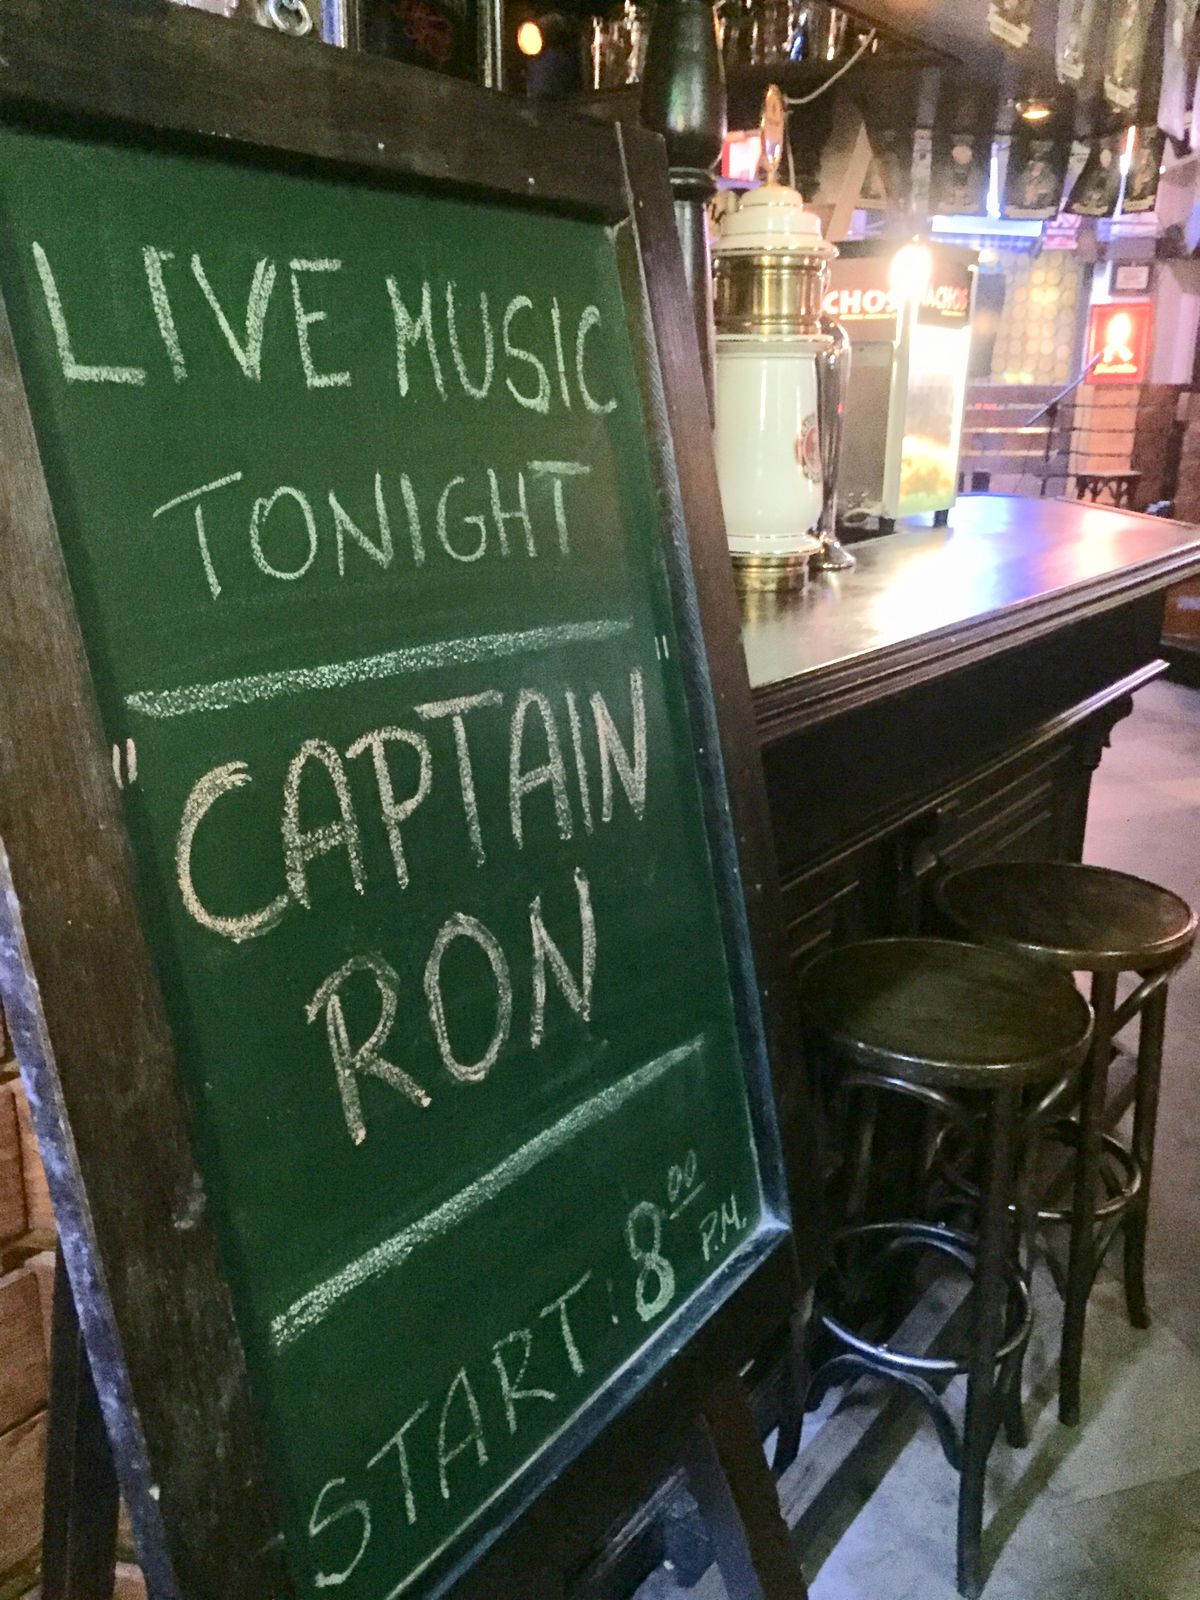 LIVE MUSIC
TONIGHT
"CAPTAIN"
RON
START: 8 00 P.M.
NACHOS